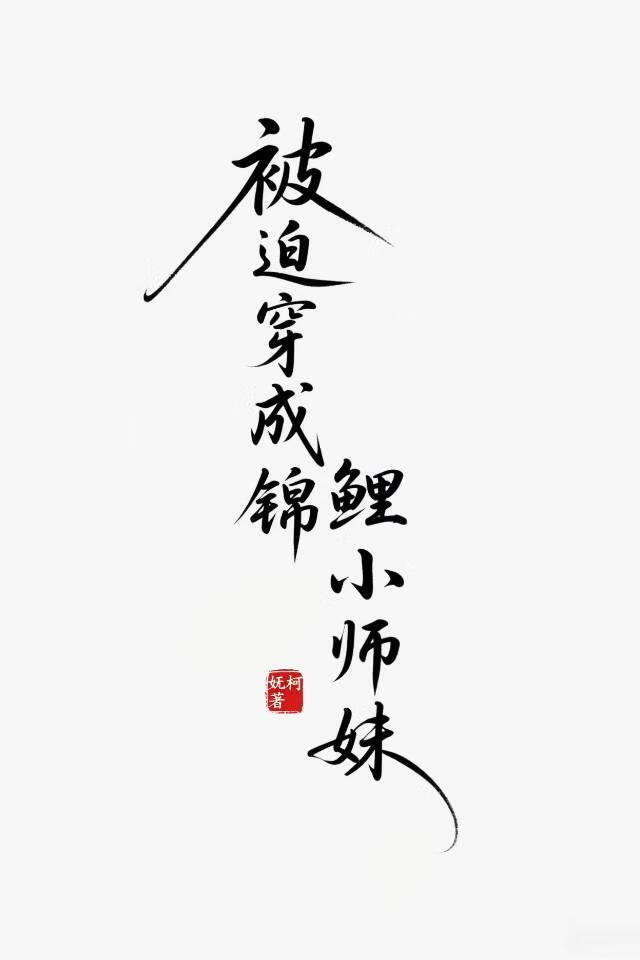 被迫穿成锦
鲤小师妹
柯
妩著